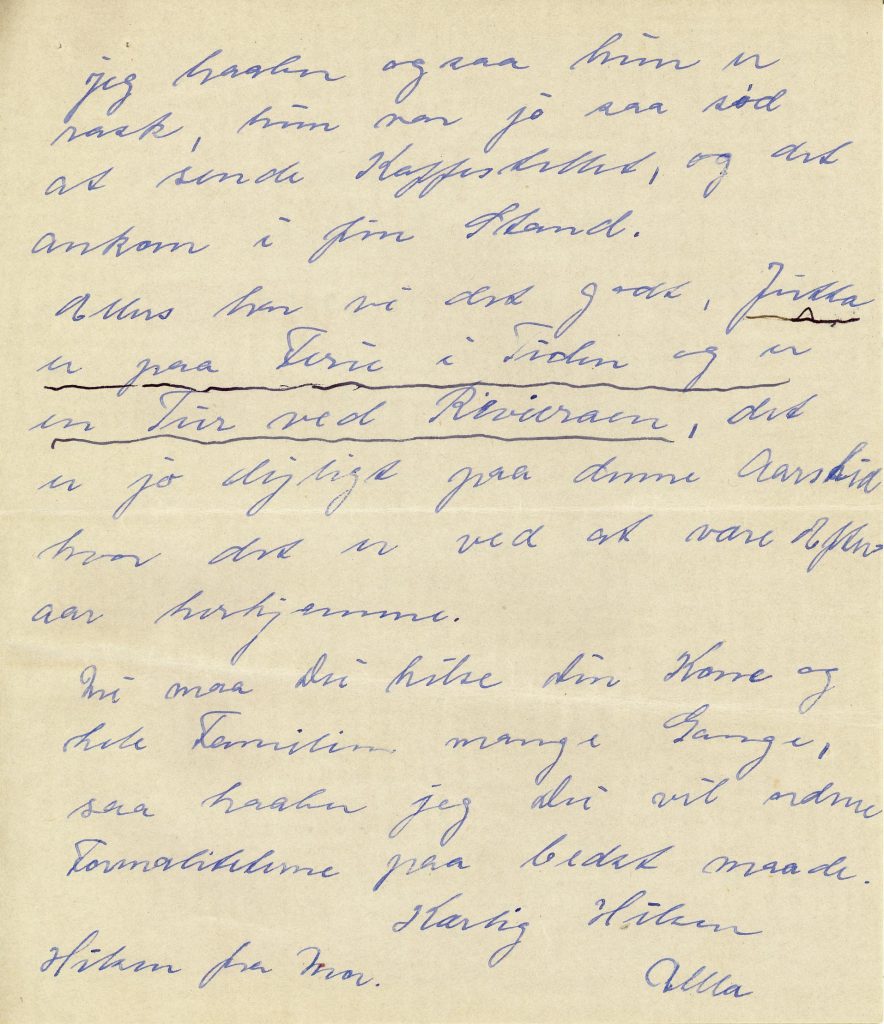 jeg haaber ogsaa hun er
rask, hun var jo saa sød
at sende Kaffestellet, og det
ankom i fin Stand.
Ellers har vi det godt, Jutta
er paa Ferie i Tiden og er
en Tur ved Rivieraen, det
er jo dejligt paa denne Aarstid
hvor det er ved at være Efter-
aar herhjemme.
Nu maa Du hilse Din Kone og
hele Familien mange Gange,
saa haaber jeg Du vil ordne
Formaliteterne paa bedst maade.
Kærlig Hilsen
Hilsen fra Mor.
Ulla